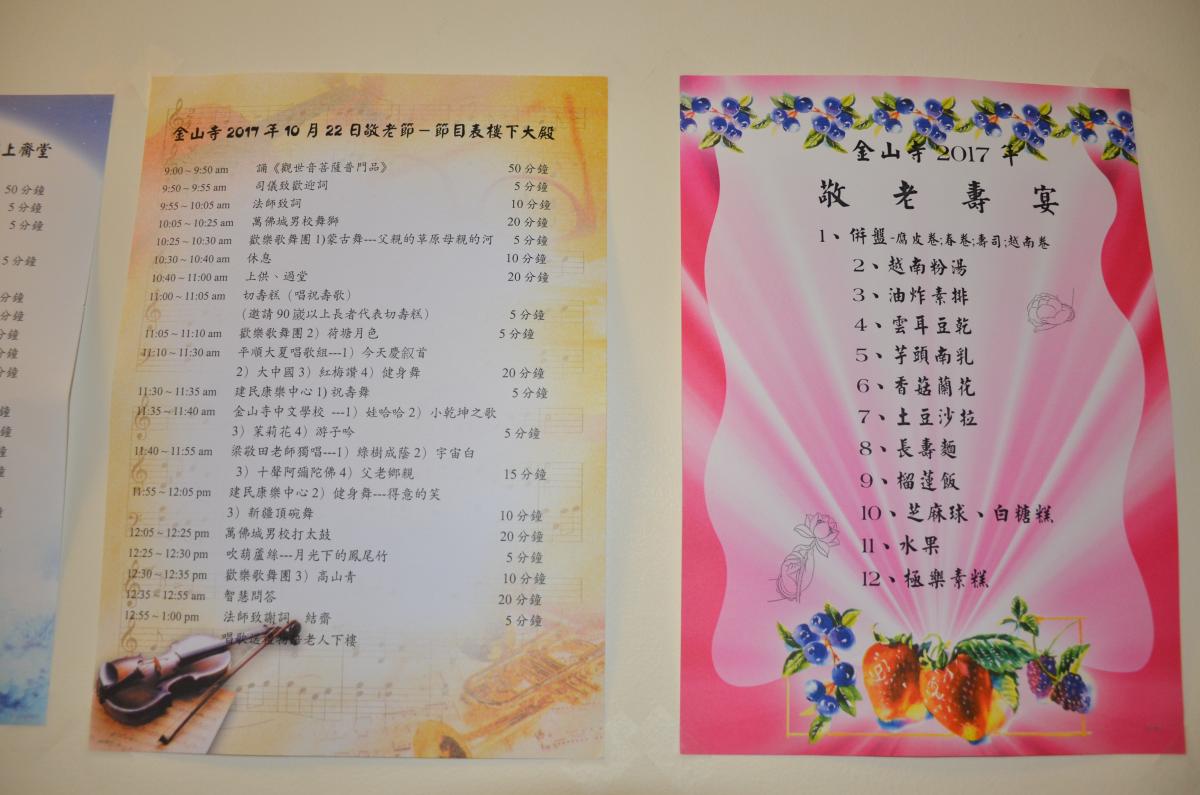 上齋堂
50 分鐘
5 分鐘
5 分鐘
5 分鐘
分鐘
分鐘
分鐘
分鐘
分鐘
分鐘
分鐘
金山寺 2017 年 10 月 22 日敬老節－節目表樓下大殿
9:00 ~ 9:50 am 誦《觀世音菩薩普門品》 50 分鐘
9:50 ~ 9:55 am 司儀致歡迎詞 5 分鐘
9:55 ~ 10:05 am 法師致詞 10 分鐘
10:05 ~ 10:25 am 萬佛城男校舞獅 20 分鐘
10:25 ~ 10:30 am 歡樂歌舞團 1)蒙古舞---父親的草原母親的河 5 分鐘
10:30 ~ 10:40 am 休息 10 分鐘
10:40 ~ 11:00 am 上供、過堂 20 分鐘
11:00 ~ 11:05 am 切壽糕（唱祝壽歌）
（邀請 90 歲以上長者代表切壽糕） 5 分鐘
11:05 ~ 11:10 am 歡樂歌舞團 2）荷塘月色 5 分鐘
11:10 ~ 11:30 am 平順大夏唱歌組---1）今天慶叙首
2）大中國 3）紅梅讚 4）健身舞 20 分鐘
11:30 ~ 11:35 am 建民康樂中心 1) 祝壽舞 5 分鐘
11:35 ~ 11:40 am 金山寺中文學校 ---1）娃哈哈 2）小乾坤之歌
3）茉莉花 4）游子吟 5 分鐘
11:40 ~ 11:55 am 梁敬田老師獨唱---1）綠樹成蔭 2）宇宙白
3）十聲阿彌陀佛 4）父老鄉親 15 分鐘
11:55 ~ 12:05 pm 建民康樂中心 2）健身舞---得意的笑
3）新疆頂碗舞 10 分鐘
12:05 ~ 12:25 pm 萬佛城男校打太鼓 20 分鐘
12:25 ~ 12:30 pm 吹葫蘆絲---月光下的鳳尾竹 5 分鐘
12:30 ~ 12:35 pm 歡樂歌舞團 3）高山青 10 分鐘
12:35 ~ 12:55 am 智慧問答 20 分鐘
12:55 ~ 1:00 pm 法師致謝詞、結齋 5 分鐘
唱歌送 老人下樓
金山寺 2017 年
敬老壽宴
1、併盤-腐皮卷;春卷;壽司;越南卷
2、越南粉湯
3、油炸素排
4、雲耳豆乾
5、芋頭南乳
6、香菇蘭花
7、土豆沙拉
8、長壽麵
9、榴蓮飯
10、芝麻球、白糖糕
11、水果
12、極樂素糕